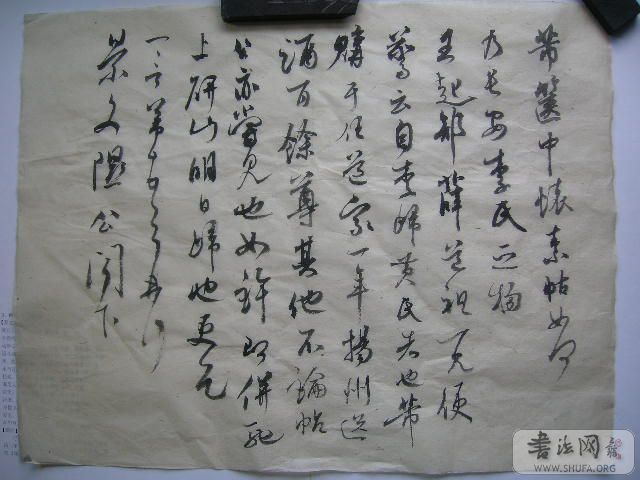 芾篋中懷素帖如何
乃長安李氏之物
王起部薛道祖一見便
驚云自李歸黃氏者也芾
購于任道家一年揚州送
酒百餘尊其他不論帖
公亦嘗見也如許即併馳
上研山明日歸也更乞
一言芾頓首再拜
景文隰公閣下
书法网
WWW.SHUFA.ORG